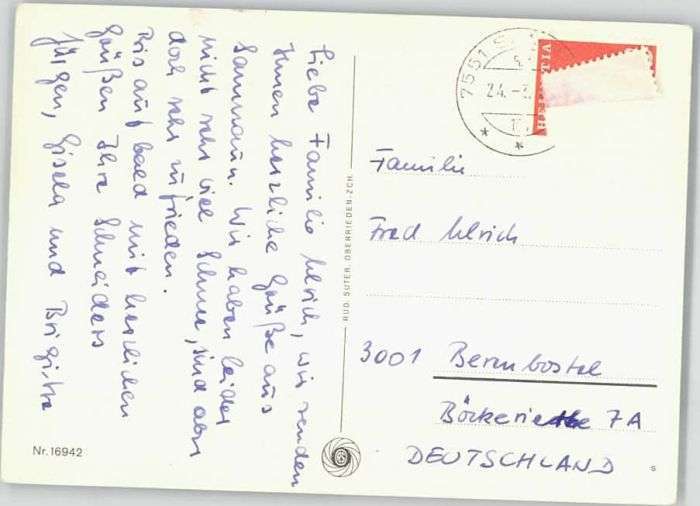 Liebe Familie Ulrich, wir senden
Ihnen herzliche Grüße aus
Samnaun. Wir haben leider
nicht sehr viel Schnee, sind aber
doch sehr zufrieden.
Bis auf bald mit herzlichen
Grüßen Ihre Schneiders
Jürgen, Gisela und Brigitte
Nr. 16942
RUD. SUTER, OBERRIEDEN-ZCH.
7551
24.-3.
HELVETIA
Familie
Fred Ulrich
3001 Berenbostel
7A
DEUTSCHLAND